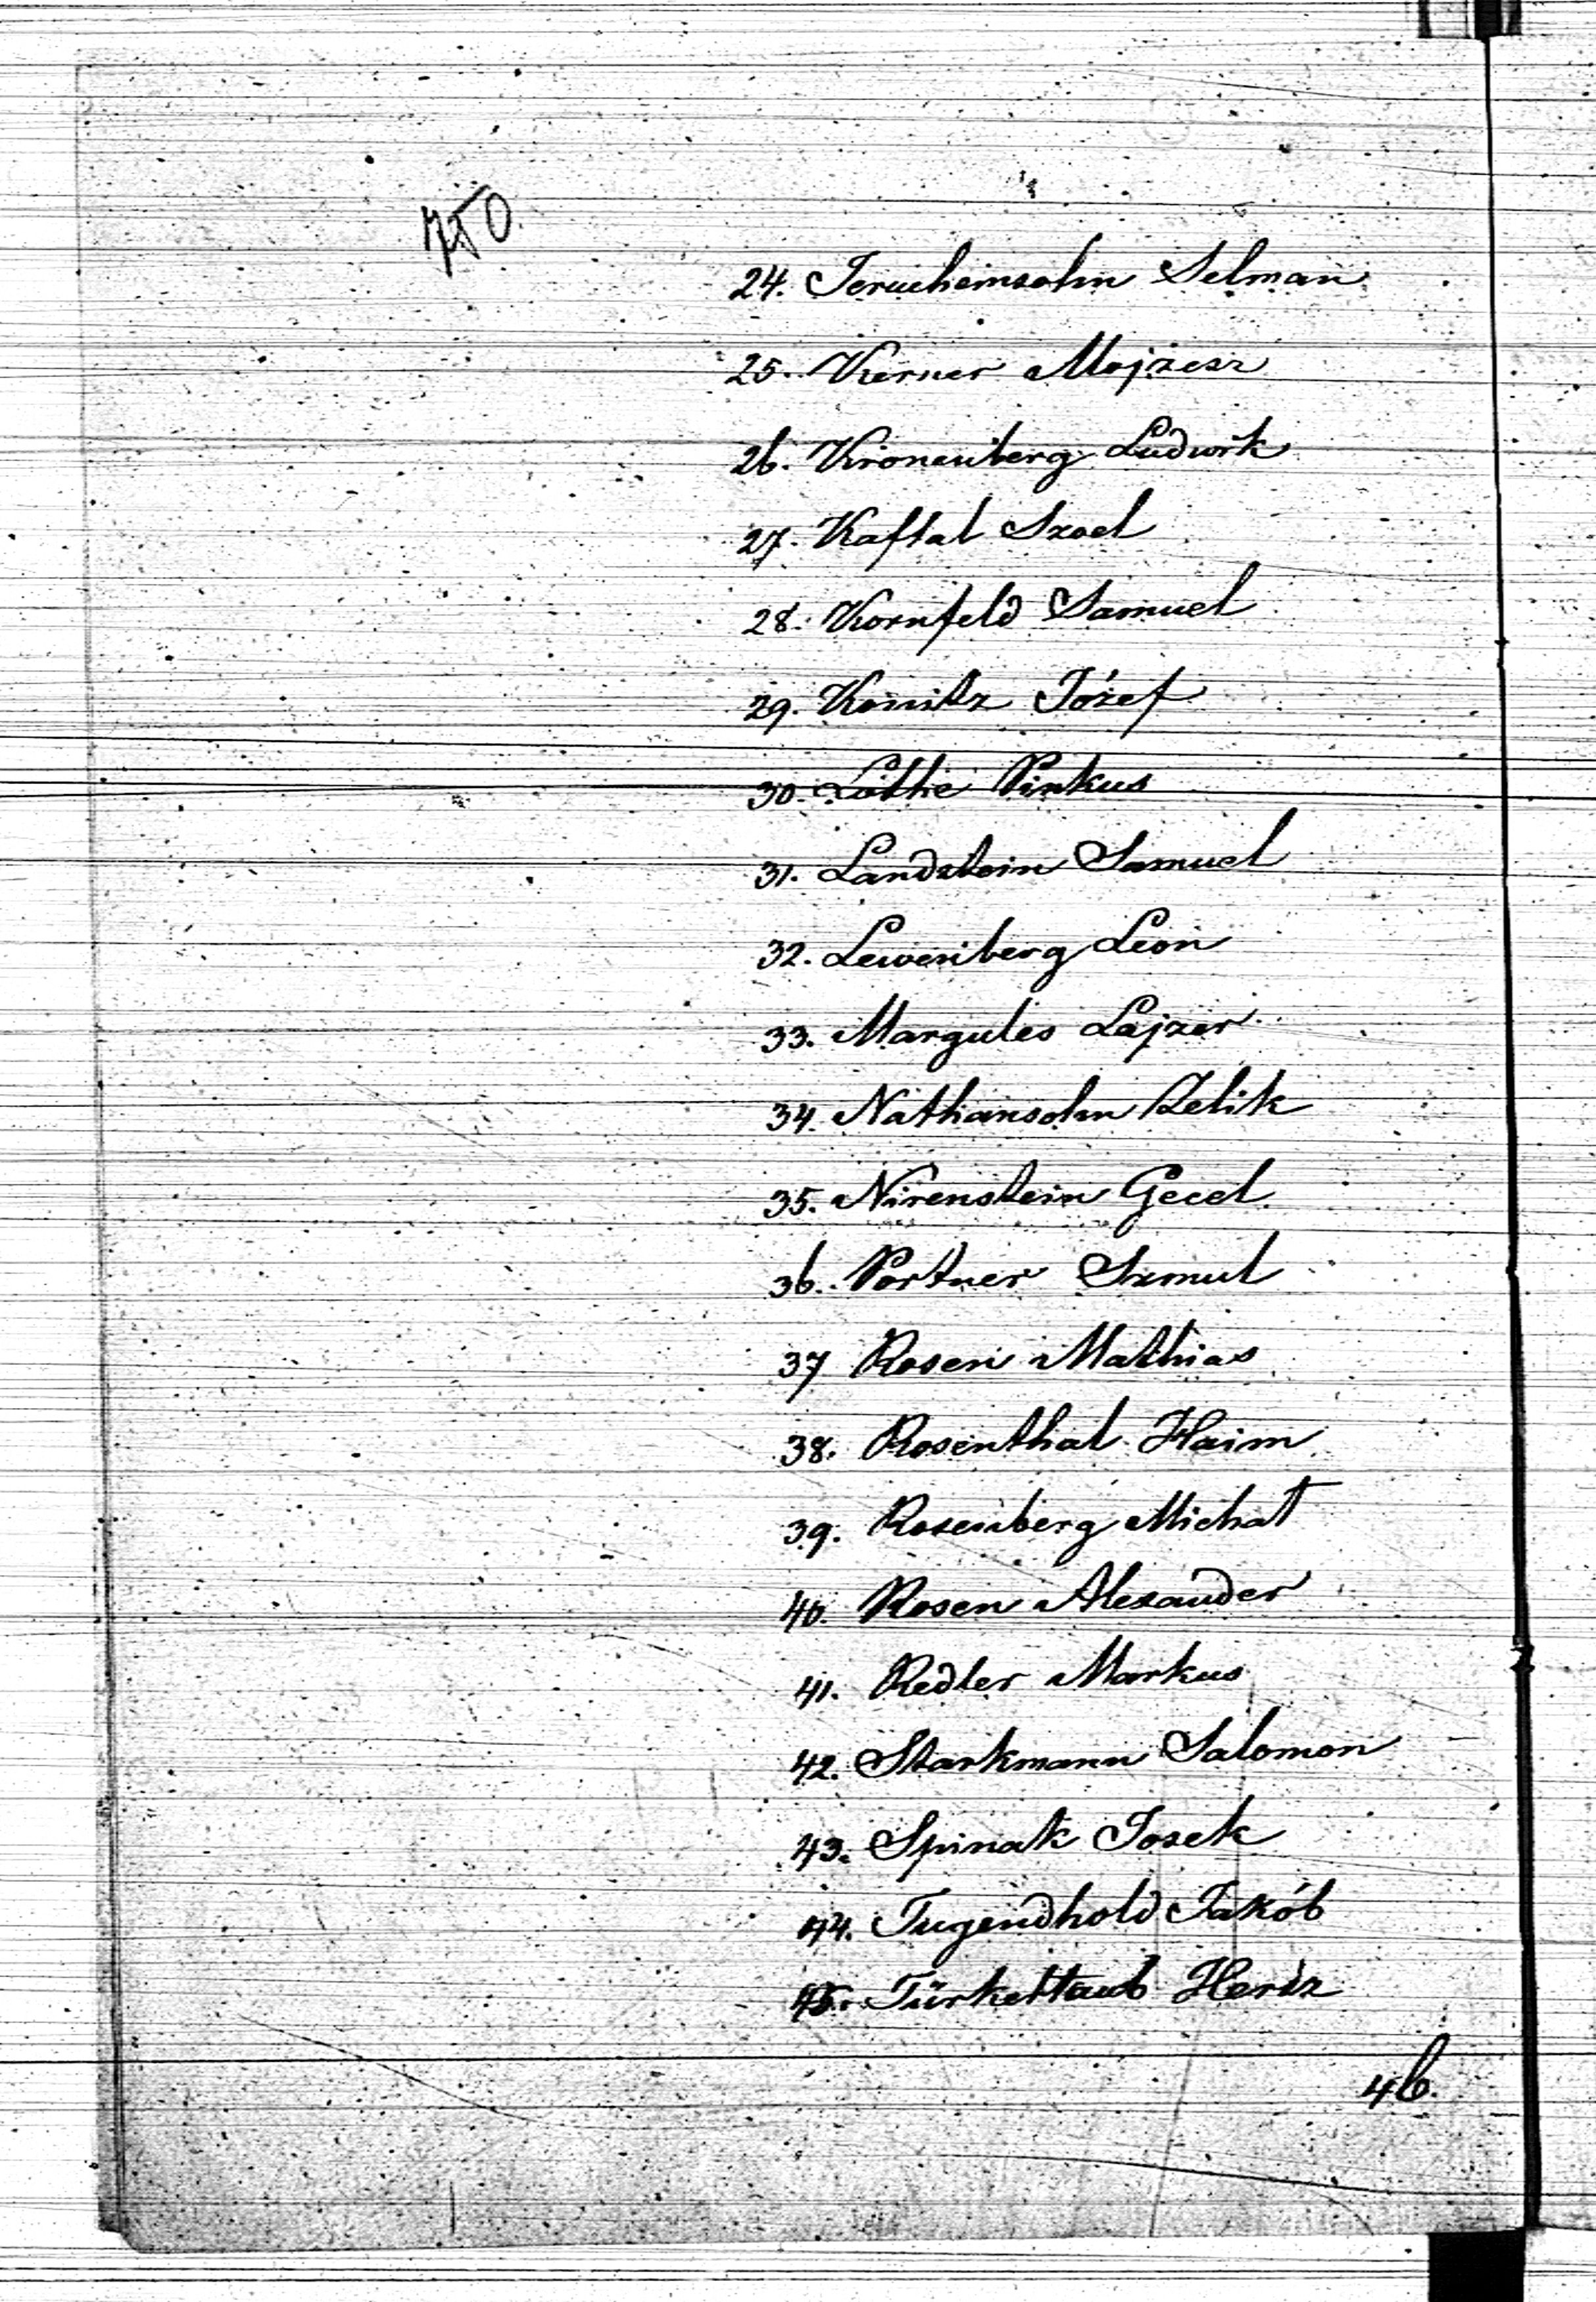 750.
24. Jerucheimsohn Selman
25. Kerner Mojzesz
26. Kronenberg Ludwik
27. Kaftal Szoel
28. Kornfeld Samuel
29. Konitz Józef
30. Lothe Pinkus
31. Landstein Samuel
32. Lewenberg Leon
33. Margules Lajzer
34. Nathansohn Zelik
35. Nirenstein Gecel
36. Portner Szmul
37 Rosen Mathias
38. Rosenthal Haim
39. Rosenberg Michał
40. Rosen Alexander
41. Redler Markus
42. Starkmann Salomon
43. Spinak Josek
44. Tugendhold Jakób
45. Türkeltaub Hersz
46.